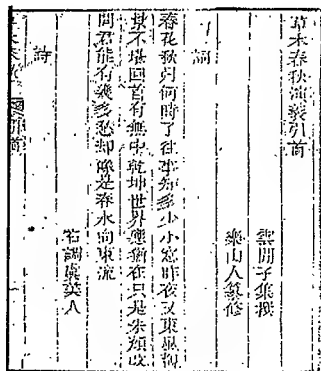 草木春秋演義引首
雲間子集撰
樂山人纂修
詞
春花秋月何時了往事知多少小窓昨夜又東風
不堪回首有無中乾坤世界應猶在只是朱顏改
問君能有幾多愁却像是春水向東流
右調虞美人
詩
引首